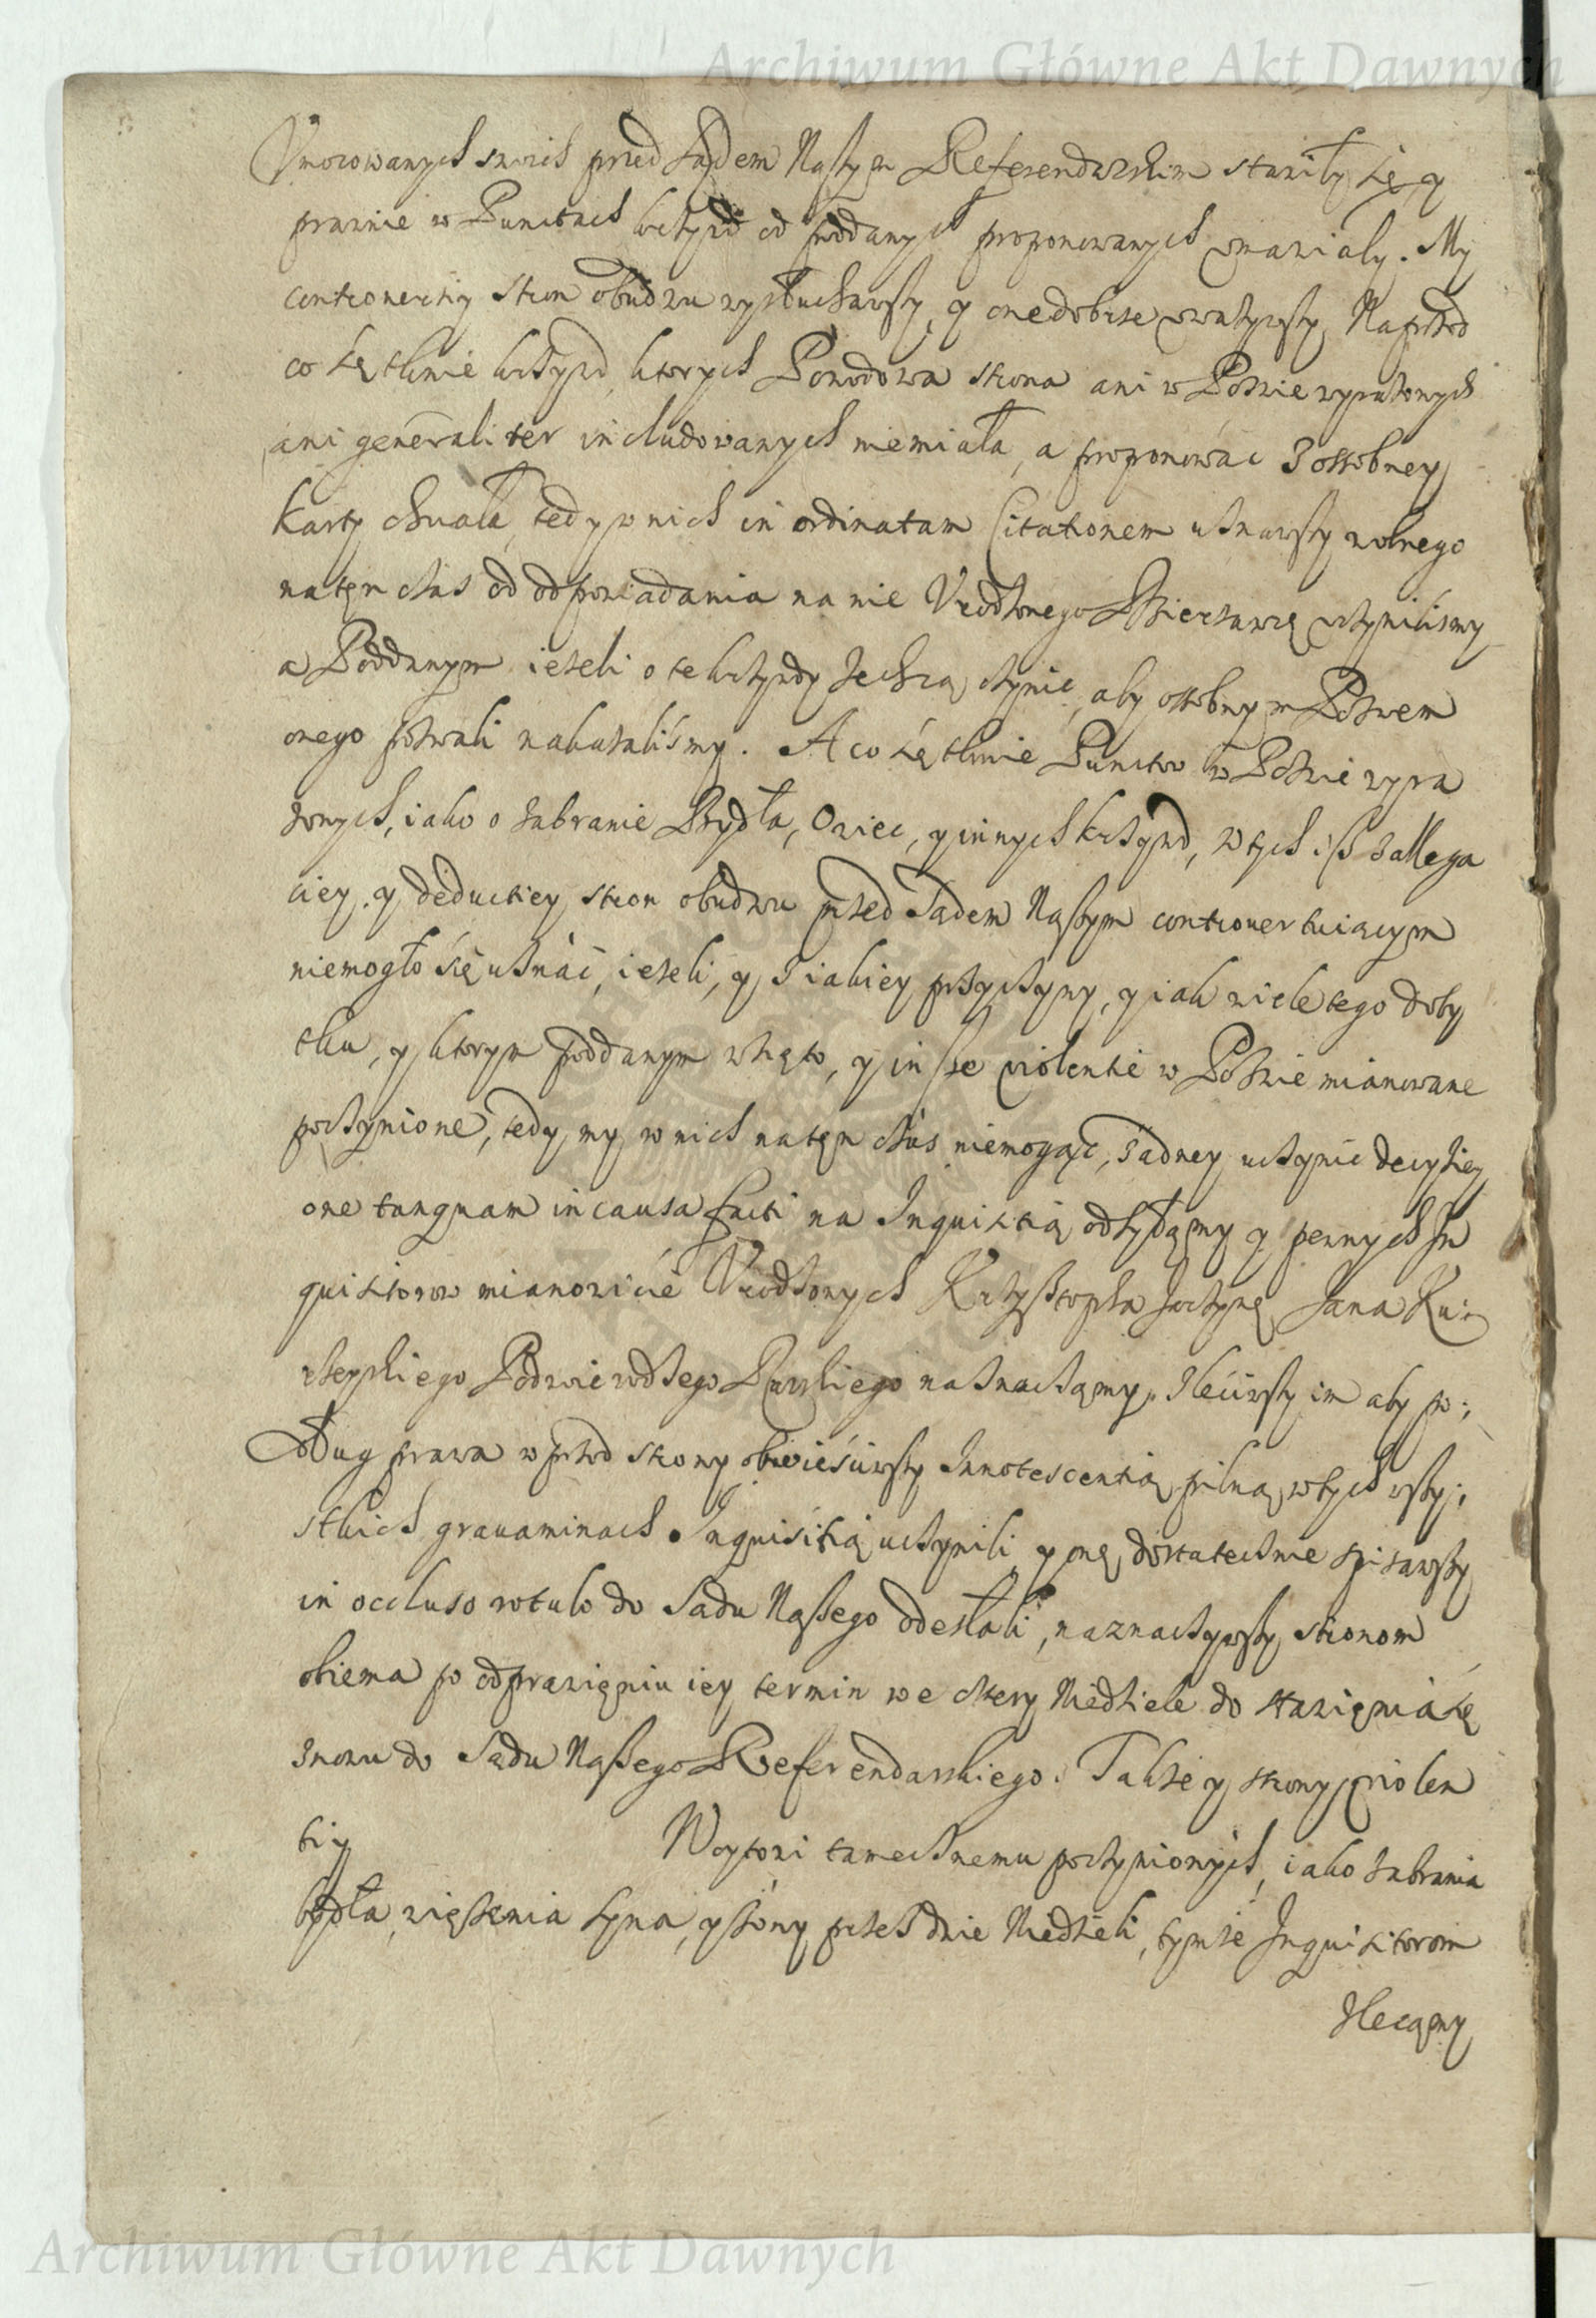 Archiwum Główne Akt Dawnych
Vmocowanych swoich przed Sądem Naszym Referendarskim stawiły się y
prawnie w Punctach krzywd od poddanych proponowanych rozmawiały. My
controwersiy stron obudwu wysłuchawszy, y one dobrze uważywszy, Naprzod
co się tknie krzywd, ktorych Powodowa strona ani w Pozwie wyrażonych
ani generaliter includowanych niemiała, a proponować z ossobney
karty chciała, tedy w nich in ordinatam Citationem uznawszy wolnego
natęn czas od odpowiadania na nie Vrodzonego Dzierzawcę uczyniliśmy
a Poddanym ieżeli o te krzywdy zechcą czynić, aby ossobnym Pozwem
onego pozwali nakazaliśmy. A co się tknie Punctow w Pozwie wyra
żonych, iako o zabranie Bydła, Owiec, y innych krzywd, w tych iż z allega
ciey y deductiey stron obudwu przed Sądem Naszym controvertuiącym
niemogło się uznać, ieżeli, y z iakiey przyczyny, y iak wiele tego doby
tku, y ktorym poddanym wzięto, y insze violentie w Pozwie mianowane
poczynione, tedy my w nich natęn czas niemogąc żadney uczynić decyziey
one tanquam in causa facti na Inquisitią odsyłamy y pewnych In
quisitorow mianowicie Vrodzonych Krzysztopha Jana
Podwiewodzego naznaczamy, zleciwszy im aby po:
dług prawa wprzod strony obwieściwszy Innotescentią pilną w tych wszy:
stkich gravaminach Inquisitią uczynili y onę dostatecznie spisawszy
in occluso rotulo do Sądu Naszego odesłali, naznaczywszy stronom
obiema po odprawięniu iey termin we cztery Niedziele do stawięnia się
znowu do Sądu Naszego Referendarskiego. Także y strony violen
tiy Woytowi tamecznemu poczynionych, iako zabrania
bydła, więzienia syna, y żony przez dwie Niedzieli, tymże Inquisitorom
Zlecamy
Archiwum Główne Akt Dawnych